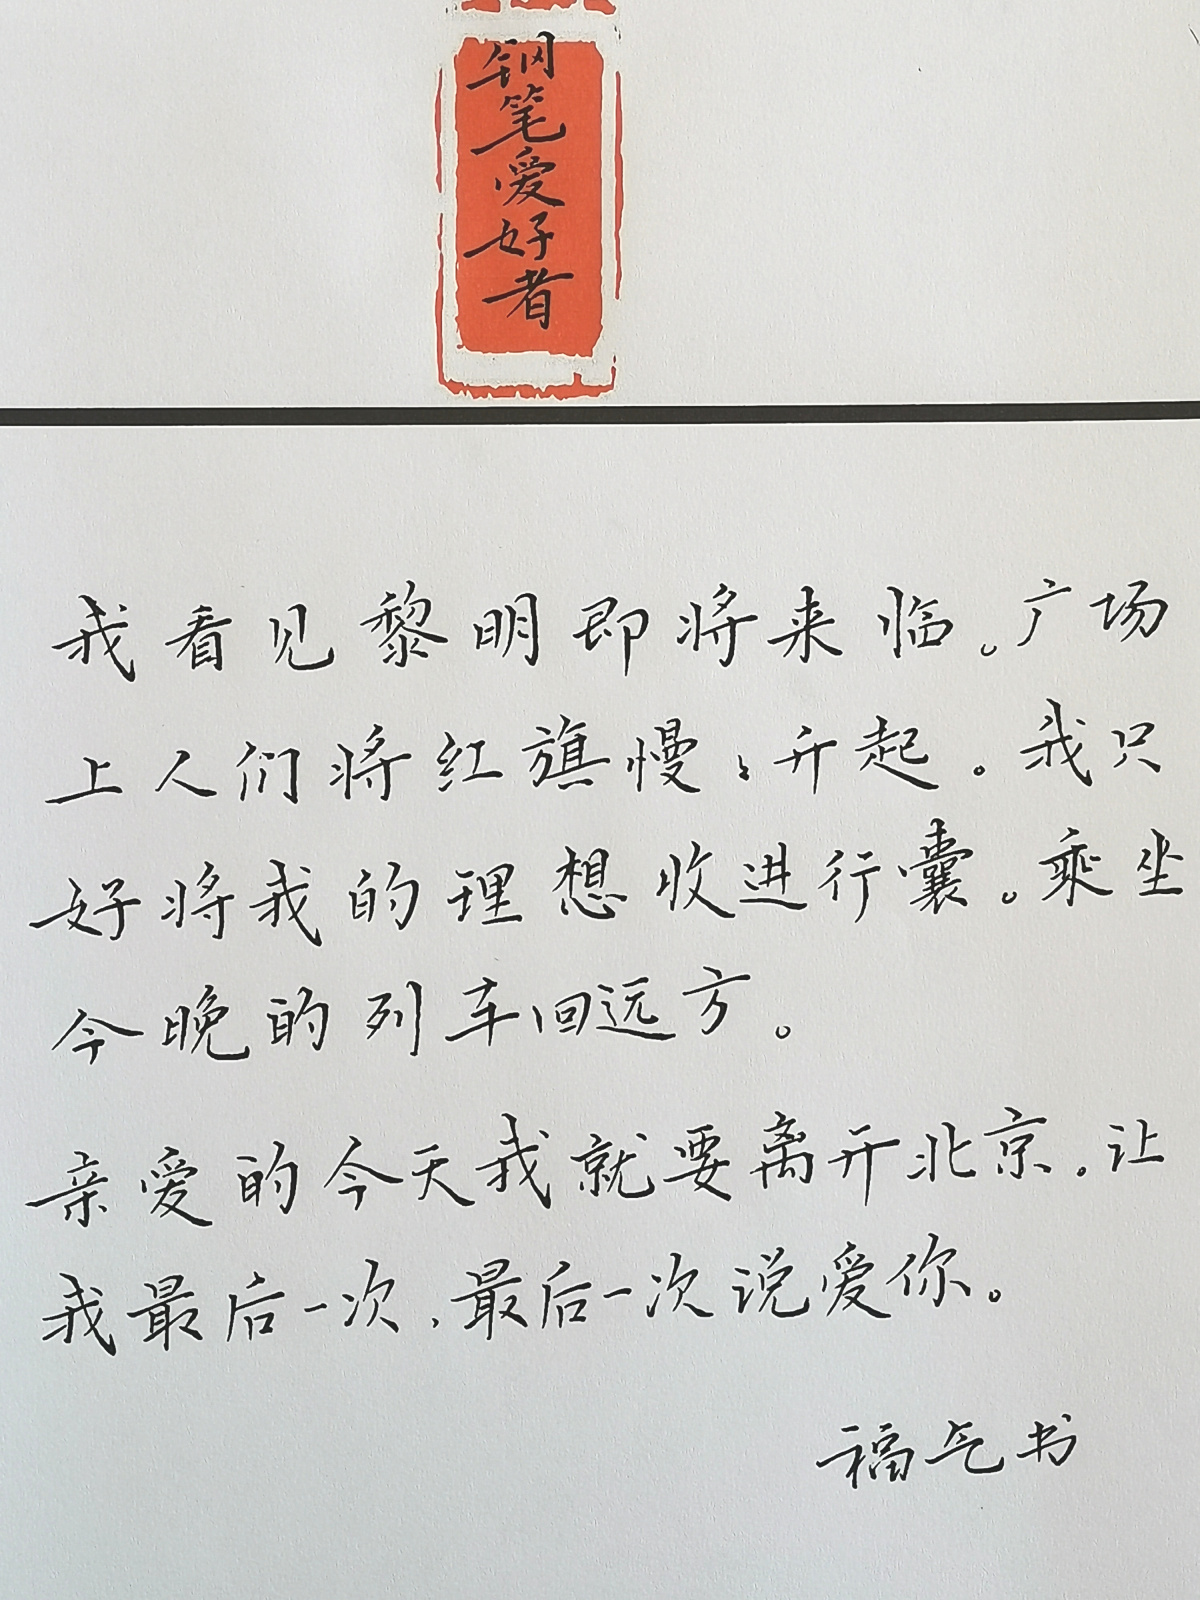 钢笔爱好者
我看见黎明即将来临。广场
上人们将红旗慢〻升起。我只
好将我的理想收进行囊。乘坐
今晚的列车回远方。
亲爱的今天我就要离开北京。让
我最后一次，最后一次说爱你。
福气书